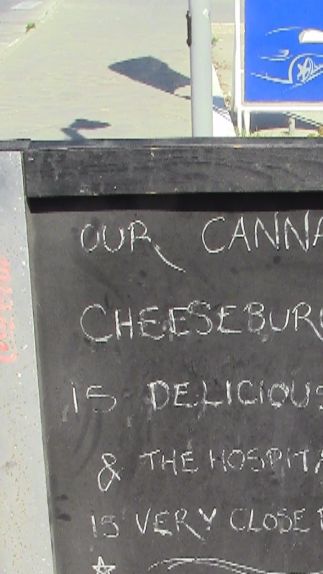 OUR CANNA
CHEESEBUR
IS DELICIOUS
& THE HOSPITA
IS VERY CLOSE